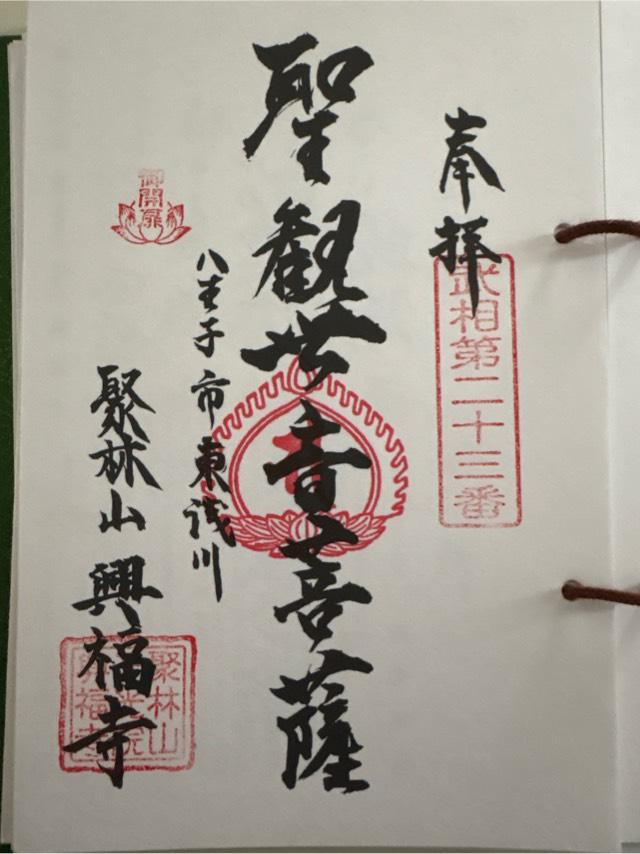 奉拝
武相第二十三番
聖観世音菩薩
八王子市東浅川
御開扉
聚林山 興福寺
聚林山
光院
興福寺